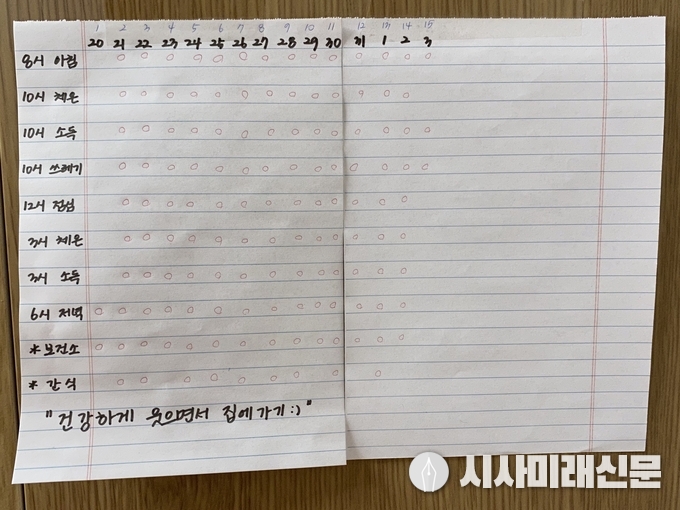 1 2 3 4 5 6 7 8 9 10 11 12 13 14 15
20 21 22 23 24 25 26 27 28 29 30 31 1 2 3
8시 아침
10시 체온
10시 소독
10시 쓰레기
12시 점심
3시 체온
3시 소독
6시 저녁
* 보건소
* 간식
"건강하게 웃으면서 집에가기:)"
시사미래신문